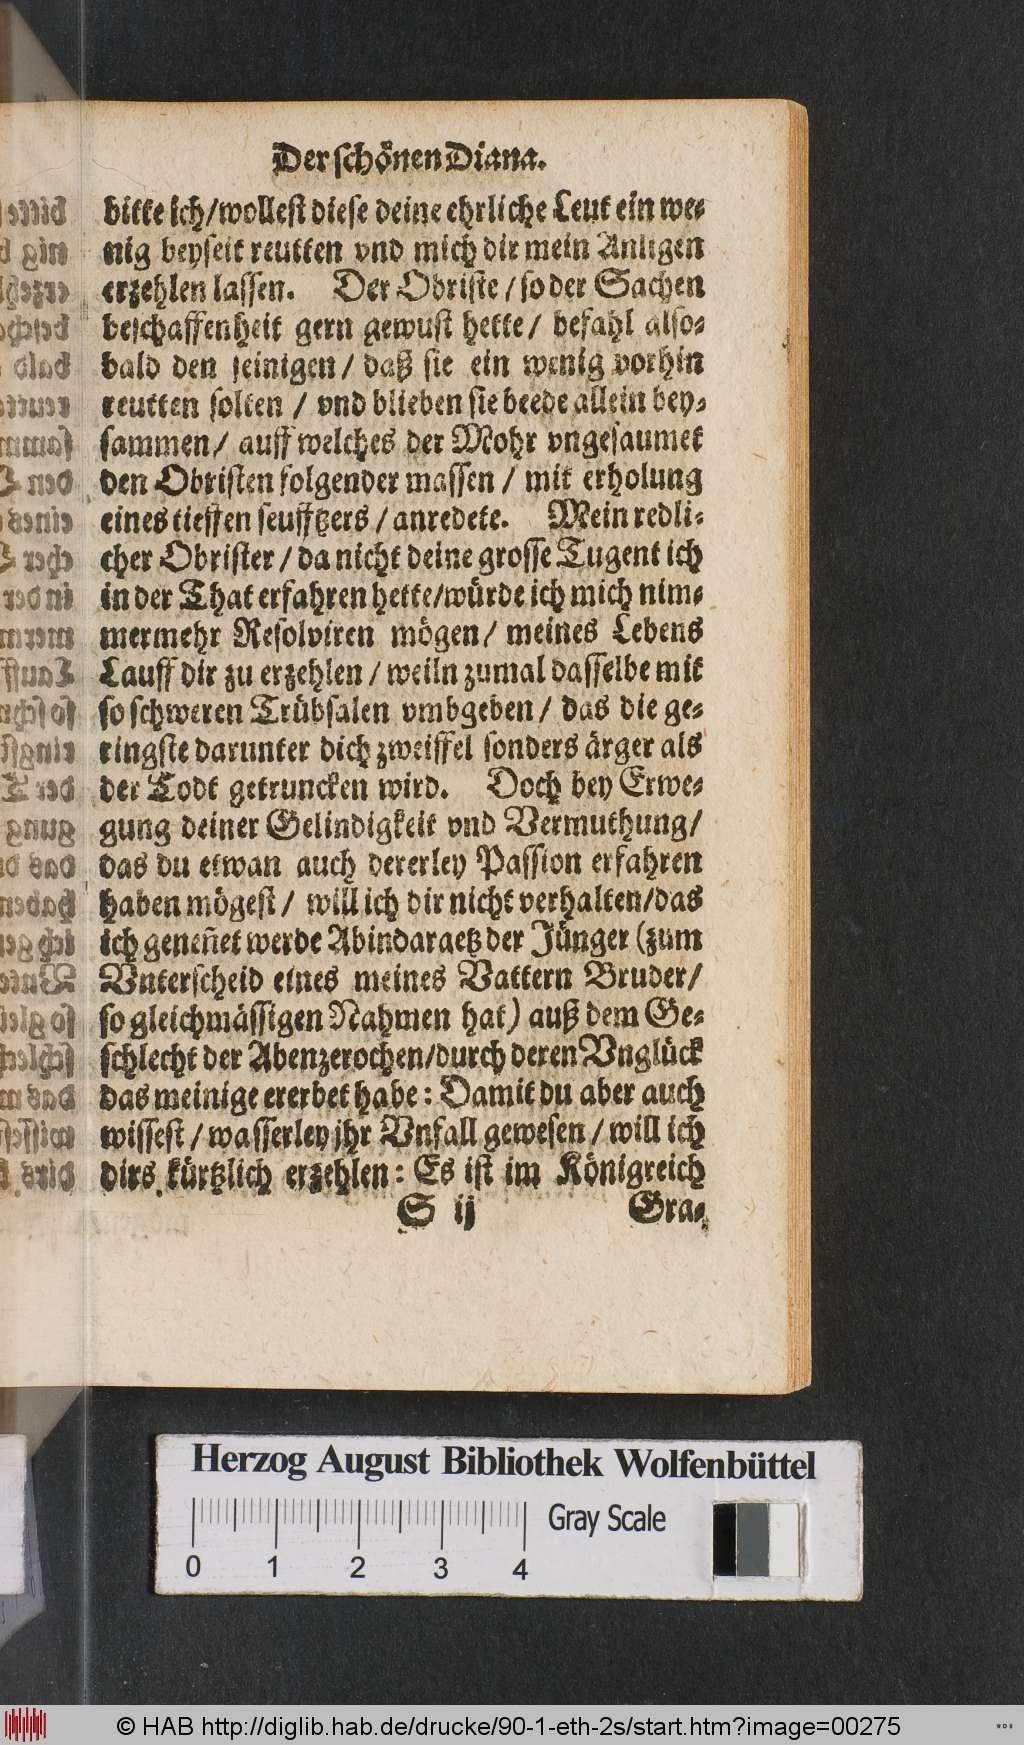 Der schönen Diana.
bitte ich/wollest diese deine ehrliche Leut ein we-
nig beyseit reutten vnd mich dir mein Anligen
erzehlen lassen. Der Obriste/so der Sachen
beschaffenheit gern gewust hette/ befahl also-
bald den seinigen/ daß sie ein wenig vorhin
reutten solten / vnd blieben sie beede allein bey-
sammen/ auff welches der Mohr vngesaumet
den Obristen folgender massen / mit erholung
eines tieffen seufftzers / anredete. Mein redli-
cher Obrister / da nicht deine grosse Tugent ich
in der That erfahren hette/würde ich mich nim-
mermehr Resolviren mögen/ meines Lebens
Lauff dir zu erzehlen / weiln zumal dasselbe mit
so schweren Trübsalen vmbgeben/ das die ge-
ringste darunter dich zweiffel sonders ärger als
der Todt getruncken wird. Doch bey Erwe-
gung deiner Gelindigkeit vnd Vermuthung/
das du etwan auch dererley Passion erfahren
haben mögest/ will ich dir nicht verhalten/das
ich geneñet werde Abindaraetz der Jünger (zum
Vnterscheid eines meines Vattern Bruder/
so gleichmässigen Nahmen hat) auß dem Ge-
schlecht der Abenzerochen/durch deren Vnglück
das meinige ererbet habe: Damit du aber auch
wissest / wasserley jhr Vnfall gewesen / will ich
dirs kürtzlich erzehlen: Es ist im Königreich
S ij Gra-
Herzog August Bibliothek Wolfenbüttel
0 1 2 3 4 Gray Scale
© HAB http://diglib.hab.de/drucke/90-1-eth-2s/start.htm?image=00275